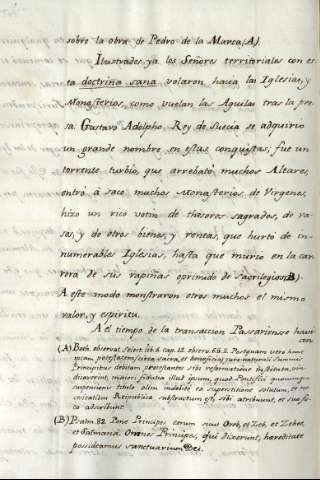 sobre la obra de Pedro de la Marca (A).
Ilustrados ya los Señores territoriales con es
ta doctrina sana volaron hacia las Iglesias, y
Monasterios, como vuelan las Aguilas tras la pre
sa. Gustavo Adolpho, Rey de Suecia se adquirio
un grande nombre en estas conquistas; fue un
torrente turbio, que arrebató muchos Altares,
entró à saco muchos Monasterios de Virgenes,
hizo un rico votin de thesoros sagrados, de va-
sos, y de otros bienes, y rentas, que hurtó de in-
numerables Iglesias, hasta que murio en la car
rera de sus rapiñas oprimido de Sacrilegios (B)
A este modo monstraron otros muchos el mismo
valor, y espiritu.
Al tiempo de la transaccion Passaviense
(A) Boeh. observat. Select. lib. 6. cap. 12. observ. 66. 2. Postquam vero
potestatem circa sacra, et beneficia jure naturali Summis
Principibus debitam protestantes sibi reformatione
maiori
titulo olim
Republica substructum est, sibi attribuunt,
adscribunt.
(B) Psalm. 82. Pone Principes eorum sicut Oreb, et Zeb, et Zebee,
et Salmana. Omnes Principes, qui dixerunt, hæreditate
possideamus sanctuarium Dei.